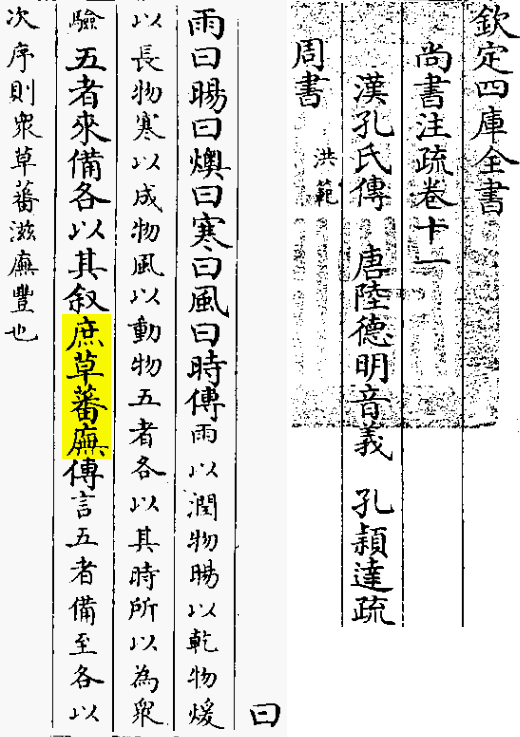 欽定四庫全書
尚書注疏卷十一
漢孔氏傳 唐陸德明音義 孔穎達疏
周書
洪範
曰
雨曰暘曰燠曰寒曰風曰時傳雨以潤物暘以乾物煖
以長物寒以成物風以動物五者各以其時所以為衆
驗五者來備各以其叙庶草蕃廡傳言五者備至各以
次序則衆草蕃滋廡豐也